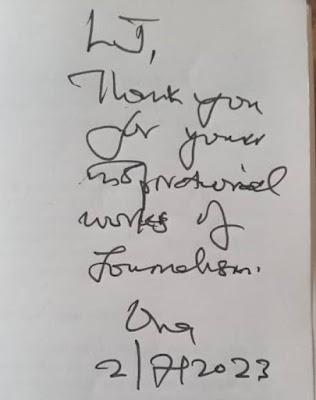 LJ,
Thank you
for your
inspirational
works of
Journalism.
2/7/2023